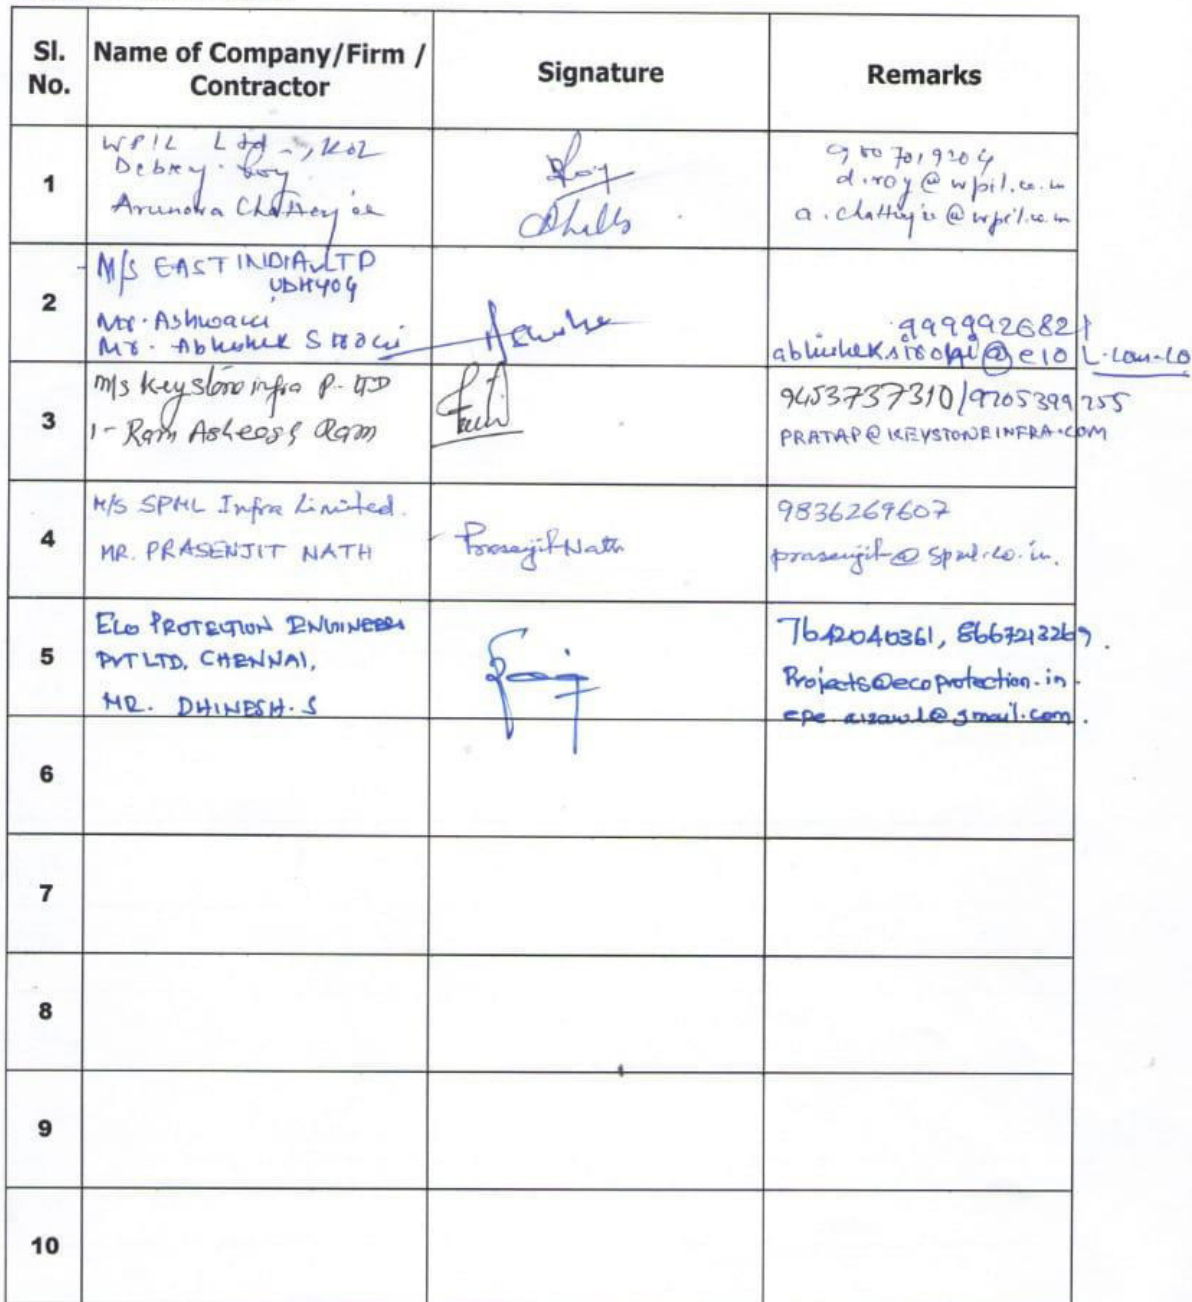 Sl. No.
Name of Company/Firm / Contractor
Signature
Remarks
1
WPIL Ltd -, KOL
Roy
Arunava Chatterjee
Roy
9007019204
d.roy@wpil.co.in
a.chatterjee@wpil.co.in
2
M/S EAST INDIA LTD
UDHYOG
Mr. Ashwani
Mr. Abhishek Sirohi
9999926821
3
M/s Keystone infra P. LTD
1- Ram Asheesh Ram
9453737310/9205399255
PRATAP@KEYSTONEINFRA.COM
4
M/S SPML Infra Limited.
MR. PRASENJIT NATH
Prosenjit Nath
9836269607
prasenjit@spml.co.in.
5
ECO PROTECTION ENGINEERS
PVT LTD, CHENNAI,
MR. DHINESH.S
7642040361, 8667213269.
Projects@ecoprotection.in
epe.aizawl@gmail.com.
6
7
8
9
10